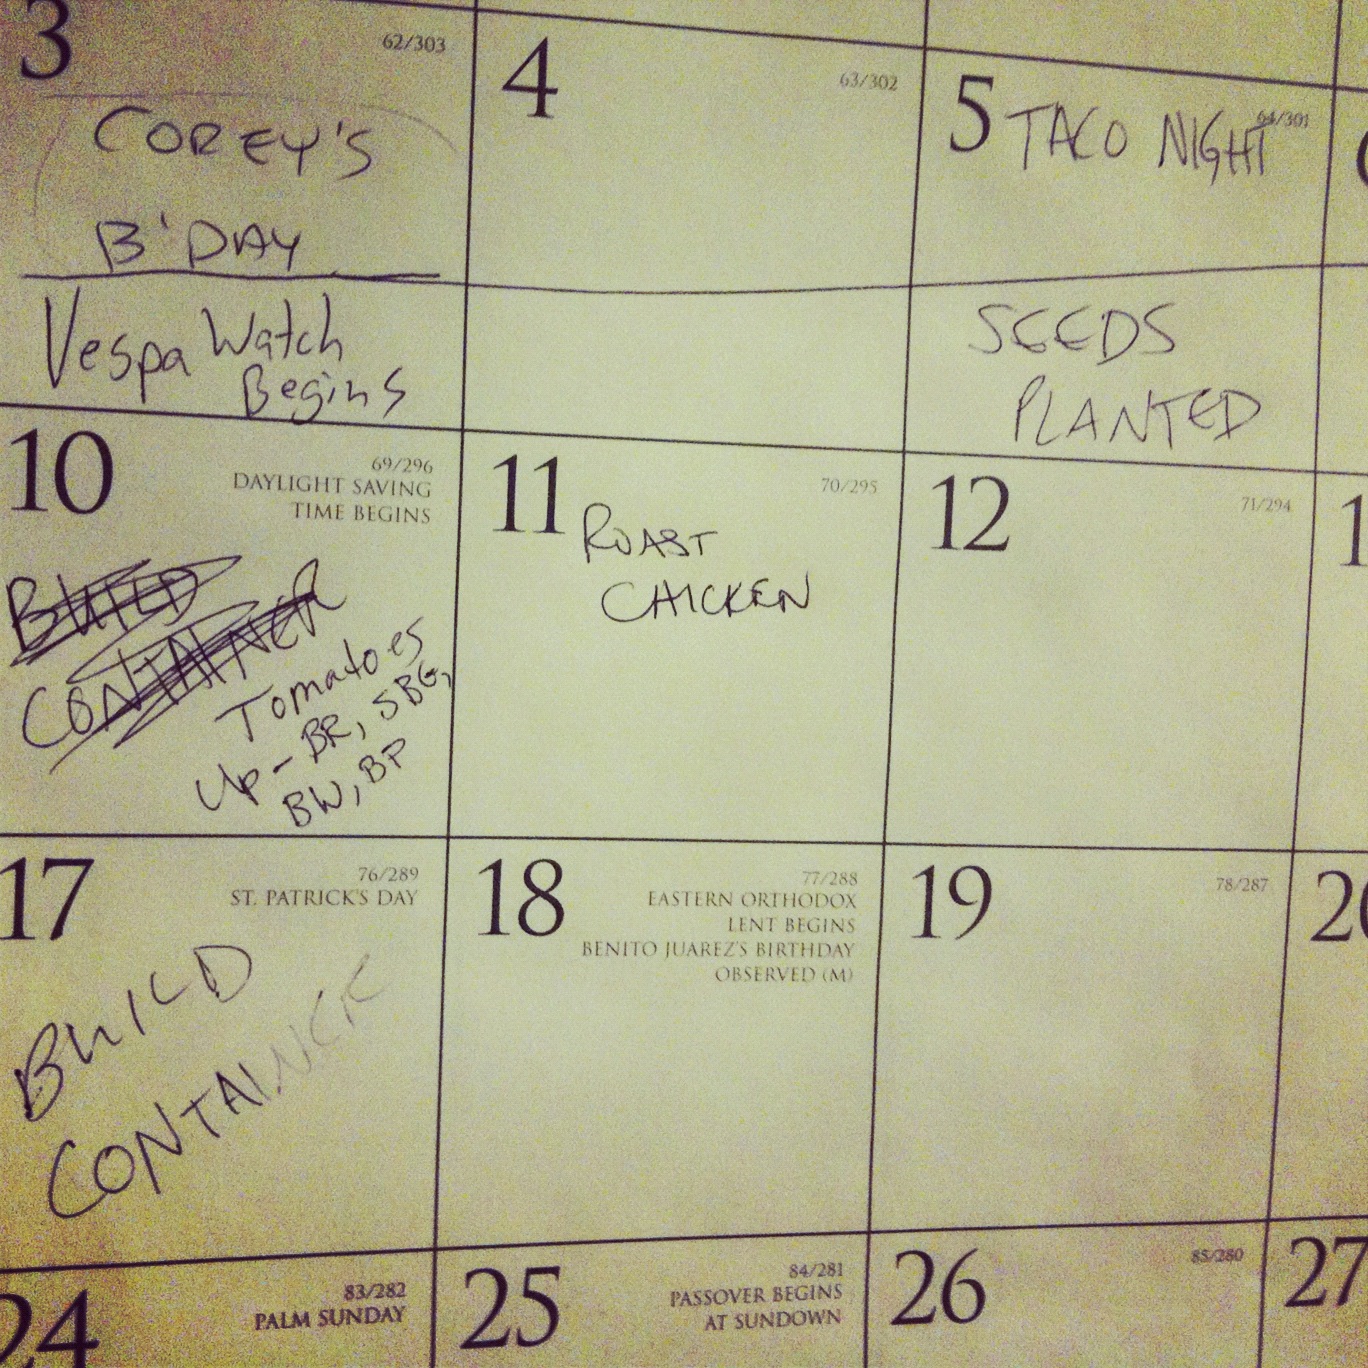 3
62/303
COREY'S
B'DAY
Vespa Watch
Begins
4
63/302
5
64/301
TACO NIGHT
SEEDS
PLANTED
10
69/296
DAYLIGHT SAVING
TIME BEGINS
BUILD
CONTAINER
Tomatoes
Up - BR, SBG,
BW, BP
11
70/295
ROAST
CHICKEN
12
71/294
1
17
76/289
ST. PATRICK'S DAY
BUILD
CONTAINER
18
77/288
EASTERN ORTHODOX
LENT BEGINS
BENITO JUAREZ'S BIRTHDAY
OBSERVED (M)
19
78/287
20
24
83/282
PALM SUNDAY
25
84/281
PASSOVER BEGINS
AT SUNDOWN
26
85/280
27